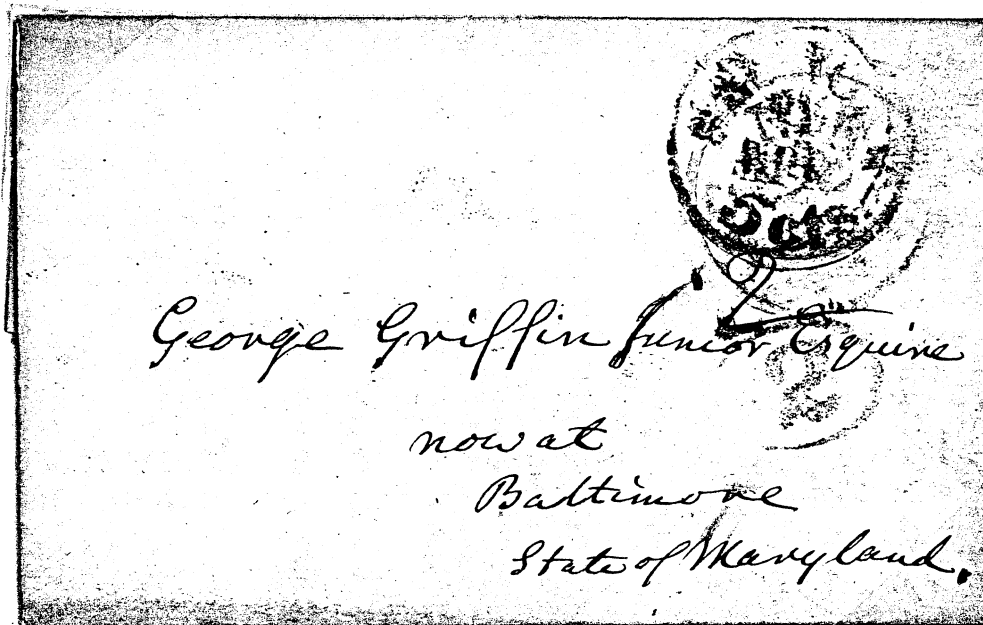 5 cts
2
George Griffin Junior Esquire
2
now at
Baltimore
State of Maryland.